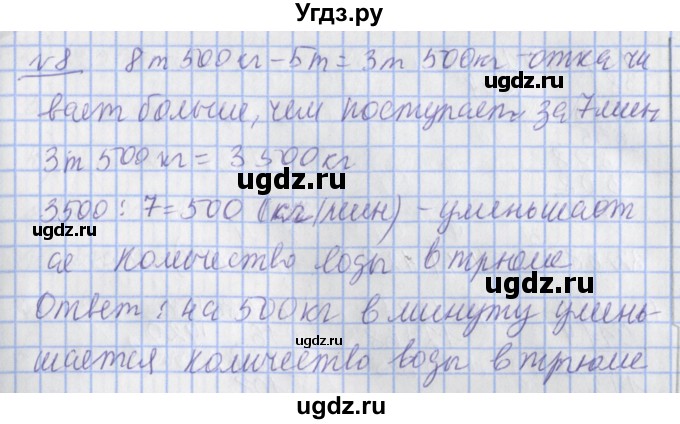 Угдз.ру
№8 8 т 500 кг – 5 т = 3 т 500 кг – откачи
вает больше, чем поступает за 7 мин
3 т 500 кг = 3 500 кг
ugdz.ru
ugdz.ru
3500 : 7 = 500 (кг/мин) – уменьшает
ся количество воды в трюме
ugdz.ru
Ответ: на 500 кг в минуту умень-
ugdz.ru
шается количество воды в трюме
ugdz.ru